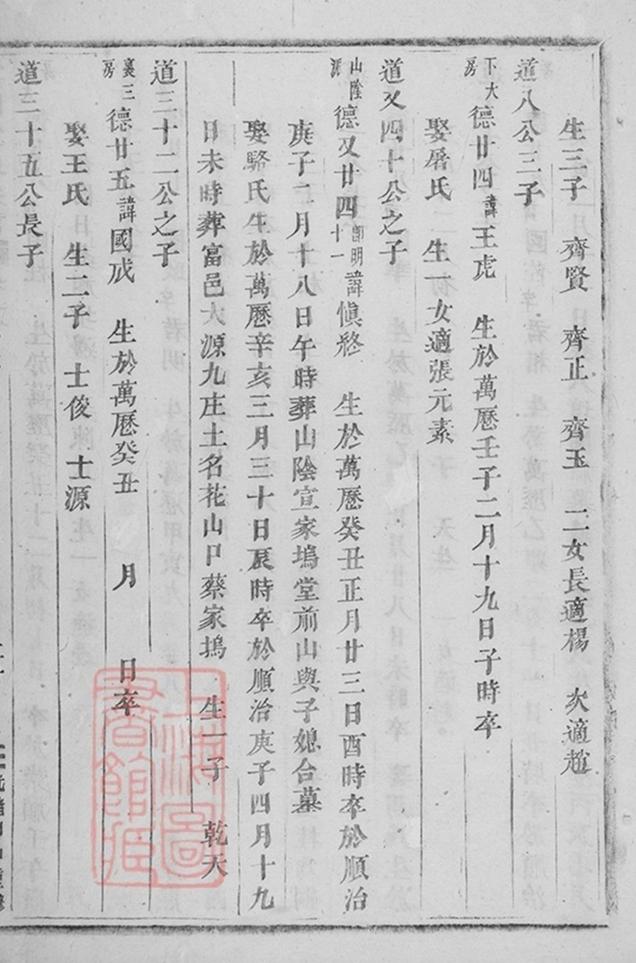 生三子 齊賢 齊正 齊玉 二女長適楊 次適趙
道八公三子
下大房 德廿四 諱王虎 生於萬曆壬子二月十九日子時卒
娶屠氏 生一女適張元素
道又四十公之子
山陰 德又廿四 明十一 諱慎終 生於萬曆癸丑正月廿三日酉時卒於順治
庚子二月十八日午時葬山陰宣家塢堂前山與子媳合墓
娶駱氏生於萬曆辛亥三月三十日辰時卒於順治庚子四月十九
日未時葬富邑大源九庄土名花山口蔡家塢 生一子 乾天
道三十二公之子
三房 德廿五 諱國戒 生於萬曆癸丑 月 日卒
娶王氏 生二子 士俊 士源
道三十五公長子
上海圖書館藏